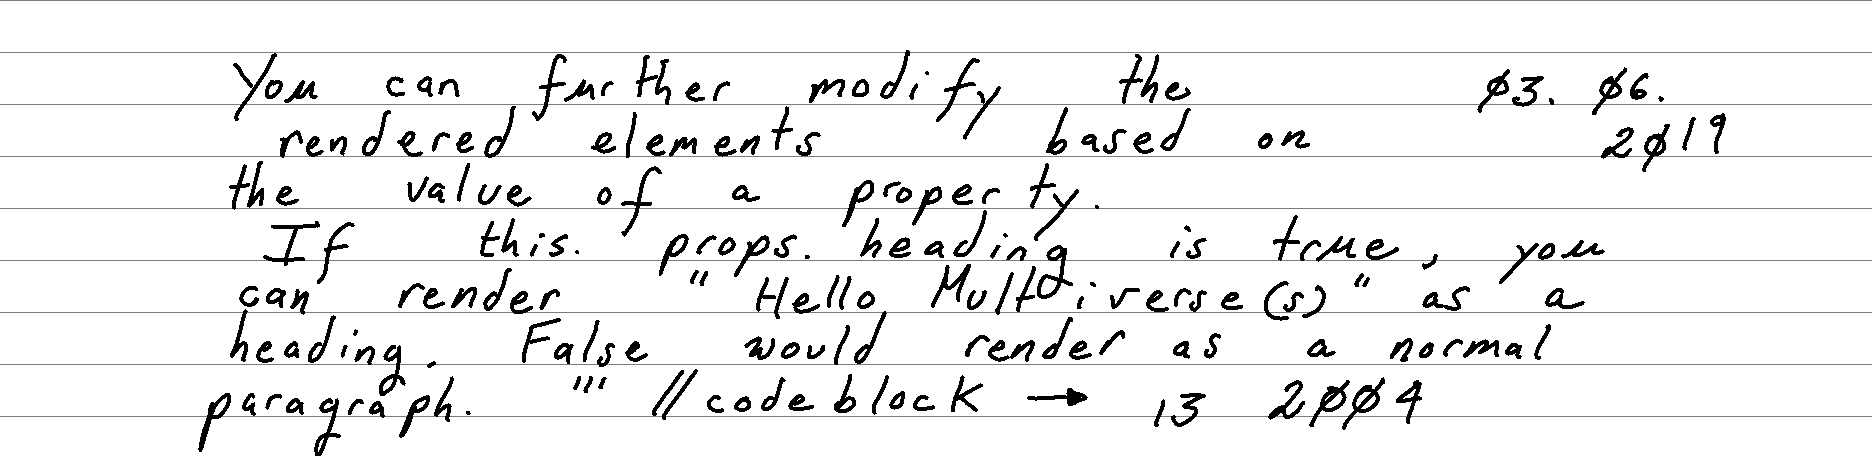 You can further modify the 03. 06.
rendered elements based on 2019
the value of a property.
If this. props. heading is true, you
can render " Hello Multiverse(s)" as a
heading. False would render as a normal
paragraph. ''' // codeblock → 13 2004